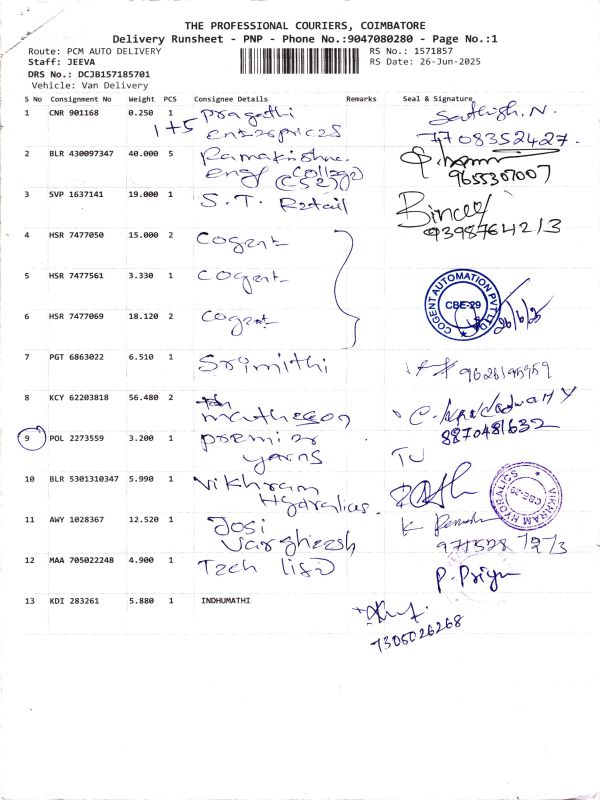 THE PROFESSIONAL COURIERS, COIMBATORE
Delivery Runsheet - PNP - Phone No.:9047080280 - Page No.:1
Route: PCM AUTO DELIVERY
RS No.: 1571857
Staff: JEEVA
RS Date: 26-Jun-2025
DRS No.: DCJB157185701
Vehicle: Van Delivery
S No Consignment No Weight PCS Consignee Details Remarks Seal & Signature
1 CNR 901168 0.250 1 Pragathi Sathish.N.
1+5 Enterprices 7708352427.
2 BLR 430097347 40.000 5 Ramakrishna
Engg College 9655307007
(CSE)
3 SVP 1637141 19.000 1 S.T. Retail Bincey
9398764213
4 HSR 7477050 15.000 2 Cogent
5 HSR 7477561 3.330 1 Cogent
COGENT AUTOMATION PVT LTD CBE-29 26/6/25
6 HSR 7477069 18.120 2 Cogent
7 PGT 6863022 6.510 1 Srimithi
8 KCY 62203818 56.480 2
matheson 8870481632
9 POL 2273559 3.200 1 Premier
yarns
10 BLR 5301310347 5.990 1 Vikhram
Hydralics. VIKHRAM HYDRALICS CBE-29
11 AWY 1028367 12.520 1 Josi
Vargheesh
12 MAA 705022248 4.900 1 Tech P. Priya
13 KDI 283261 5.880 1 INDHUMATHI
7305026268